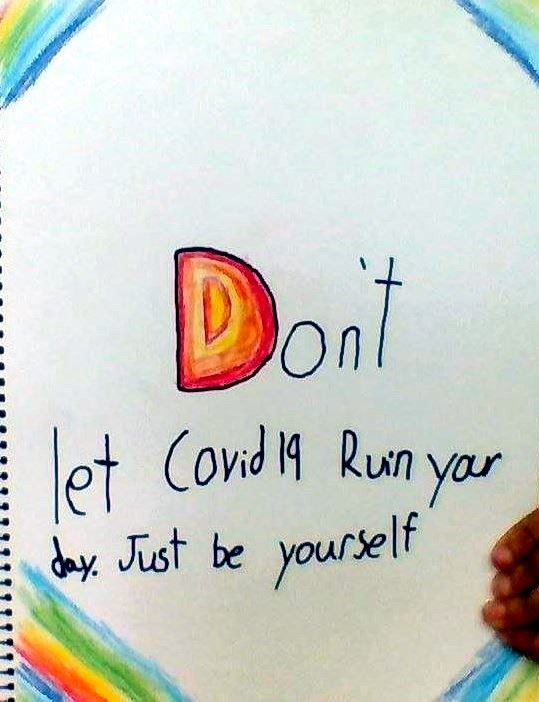 Don't
let Covid 19 Ruin your
day. Just be yourself